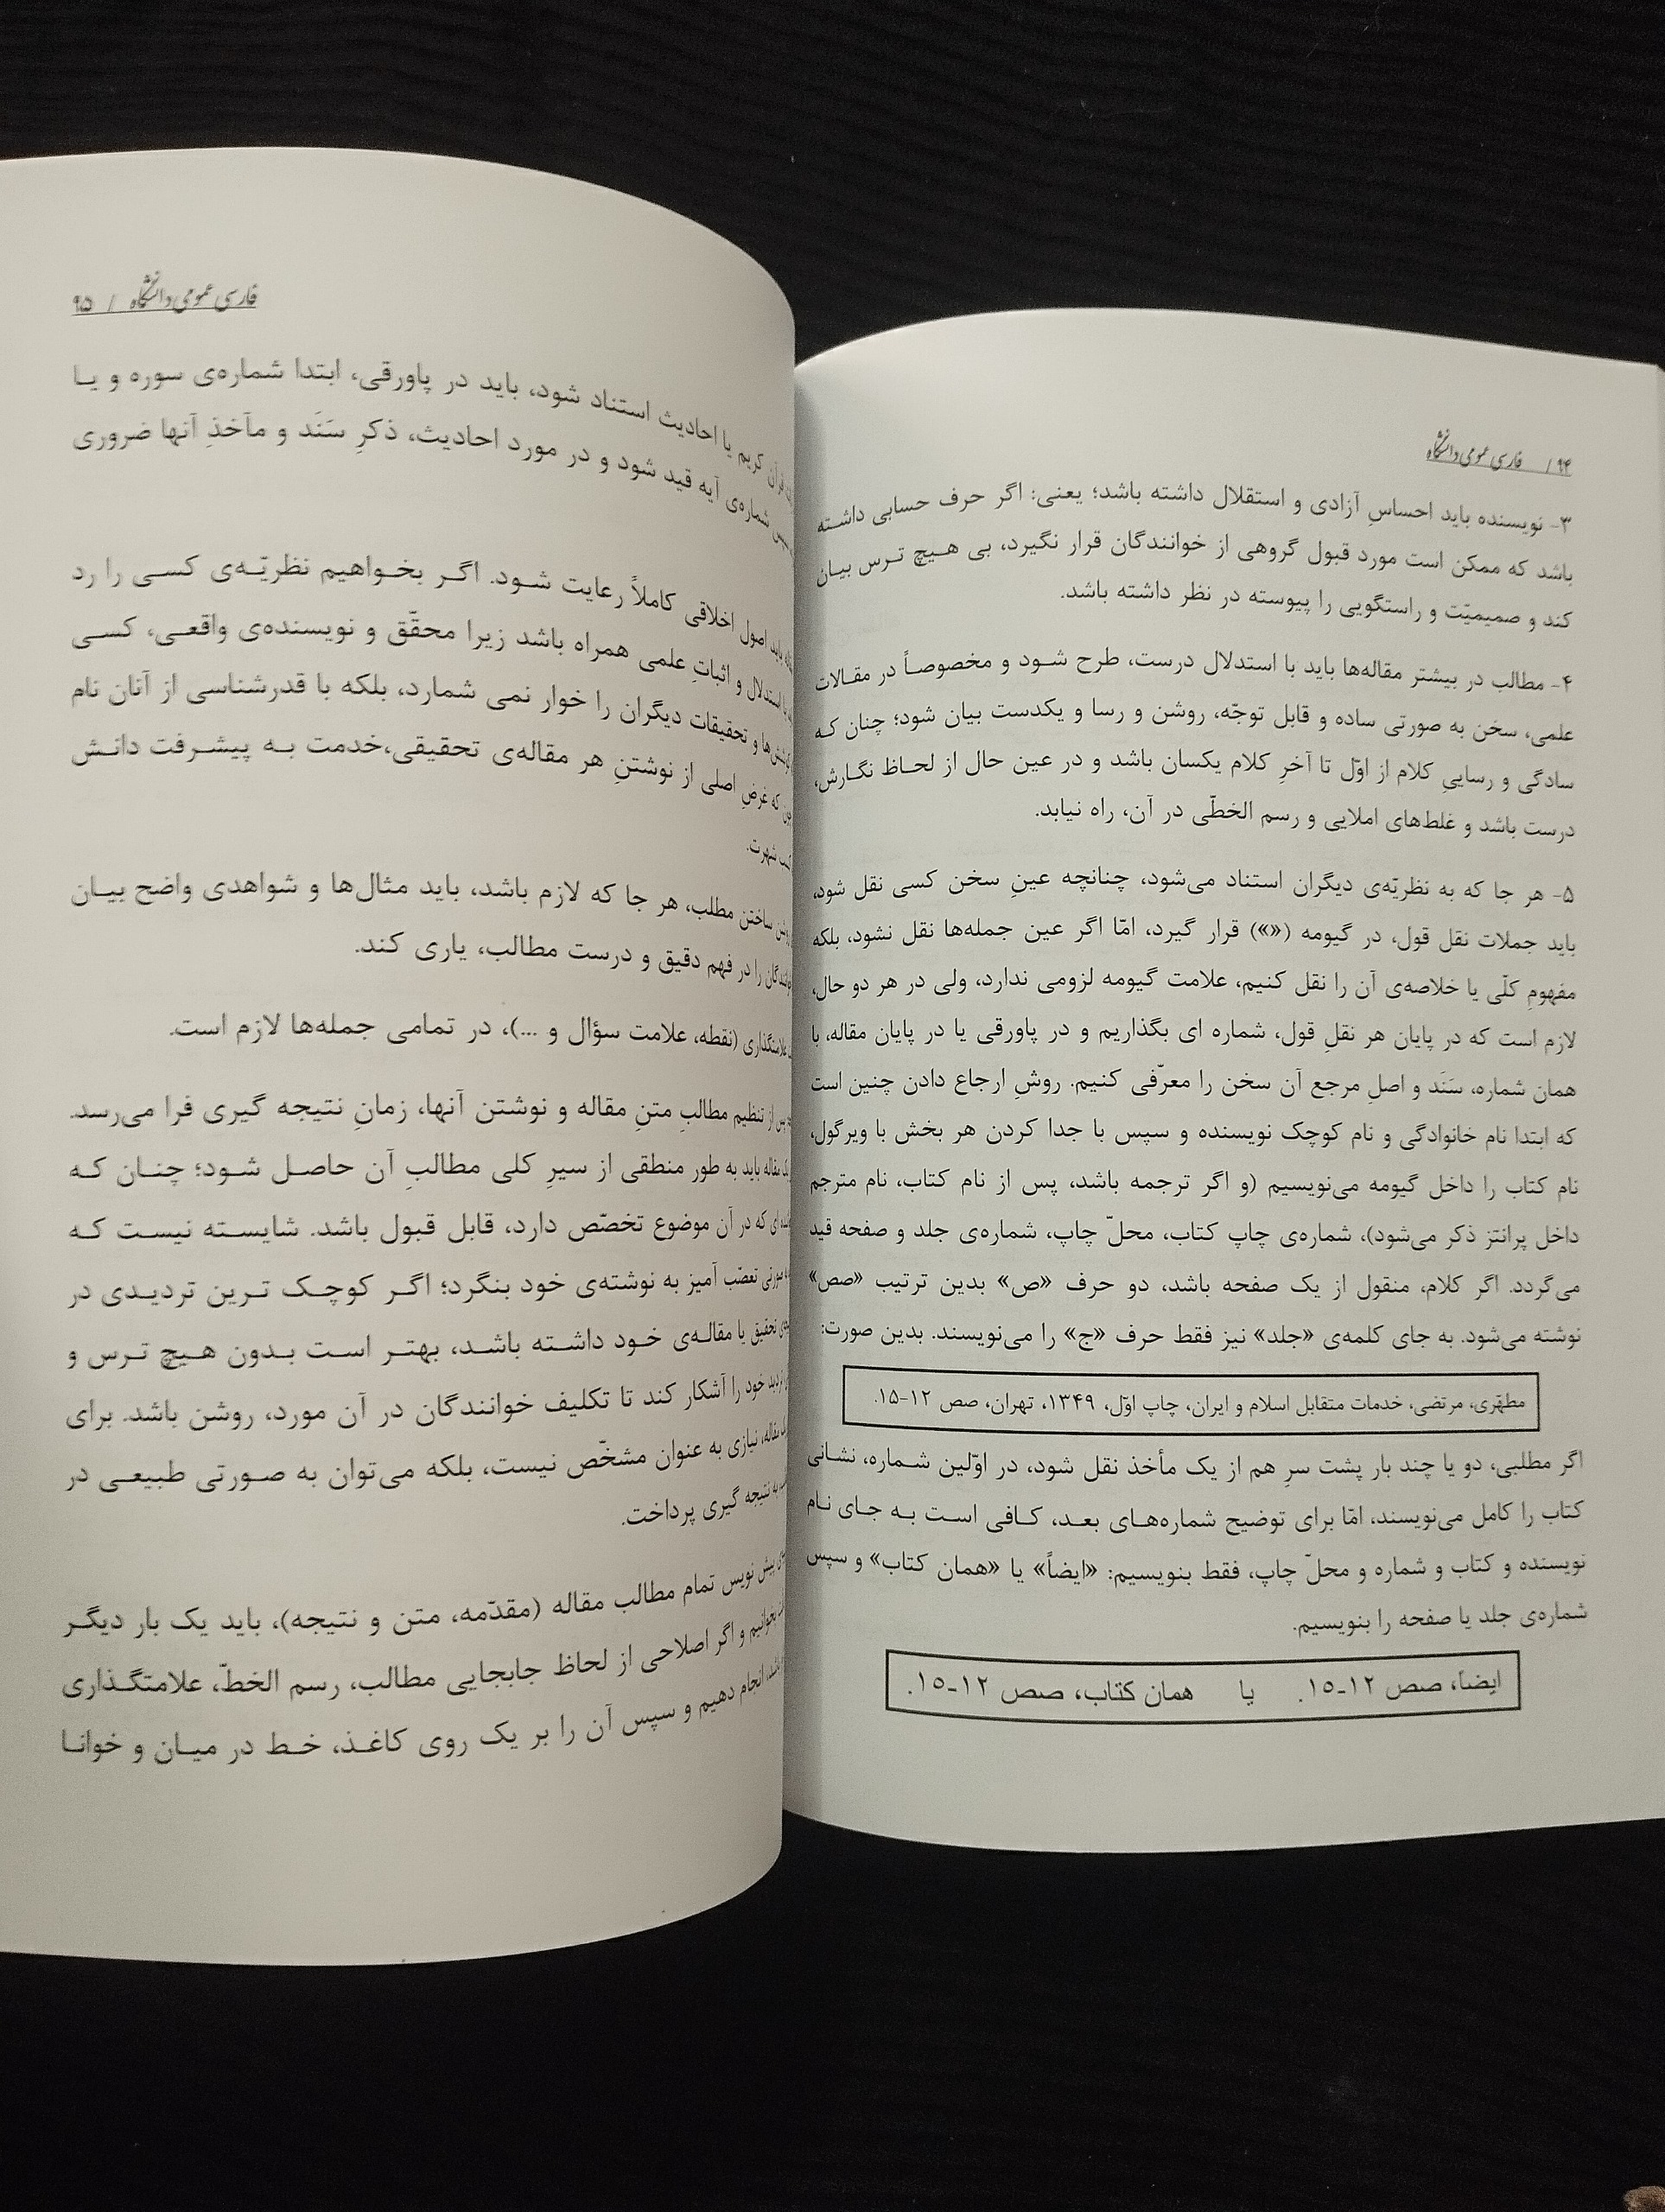 ۹۴ / فارسی عمومی دانشگاه
۳- نویسنده باید احساسِ آزادی و استقلال داشته باشد؛ یعنی: اگر حرف حسابی داشته
باشد که ممکن است مورد قبول گروهی از خوانندگان قرار نگیرد، بی هیچ ترس بیان
کند و صمیمیّت و راستگویی را پیوسته در نظر داشته باشد.
۴- مطالب در بیشتر مقاله‌ها باید با استدلال درست، طرح شود و مخصوصاً در مقالات
علمی، سخن به صورتی ساده و قابل توجّه، روشن و رسا و یکدست بیان شود؛ چنان که
سادگی و رساییِ کلام از اوّل تا آخرِ کلام یکسان باشد و در عین حال از لحاظ نگارش،
درست باشد و غلط‌های املایی و رسم الخطّی در آن، راه نیابد.
۵- هر جا که به نظریّه‌ی دیگران استناد می‌شود، چنانچه عینِ سخن کسی نقل شود،
باید جملات نقل قول، در گیومه («») قرار گیرد، امّا اگر عین جمله‌ها نقل نشود، بلکه
مفهومِ کلّی یا خلاصه‌ی آن را نقل کنیم، علامت گیومه لزومی ندارد، ولی در هر دو حال،
لازم است که در پایان هر نقلِ قول، شماره ای بگذاریم و در پاورقی یا در پایان مقاله، با
همان شماره، سَنَد و اصلِ مرجع آن سخن را معرّفی کنیم. روشِ ارجاع دادن چنین است
که ابتدا نام خانوادگی و نام کوچک نویسنده و سپس با جدا کردن هر بخش با ویرگول،
نام کتاب را داخل گیومه می‌نویسیم (و اگر ترجمه باشد، پس از نام کتاب، نام مترجم
داخل پرانتز ذکر می‌شود)، شماره‌ی چاپ کتاب، محلّ چاپ، شماره‌ی جلد و صفحه قید
می‌گردد. اگر کلام، منقول از یک صفحه باشد، دو حرف «ص» بدین ترتیب «صص»
نوشته می‌شود. به جای کلمه‌ی «جلد» نیز فقط حرف «ج» را می‌نویسند. بدین صورت:
مطهّری، مرتضی، خدمات متقابل اسلام و ایران، چاپ اوّل، ۱۳۴۹، تهران، صص ۱۲-۱۵.
اگر مطلبی، دو یا چند بار پشت سرِ هم از یک مأخذ نقل شود، در اوّلین شماره، نشانی
کتاب را کامل می‌نویسند، امّا برای توضیح شماره‌های بعد، کافی است به جای نام
نویسنده و کتاب و شماره و محلّ چاپ، فقط بنویسیم: «ایضاً» یا «همان کتاب» و سپس
شماره‌ی جلد یا صفحه را بنویسیم.
ایضاً، صص ۱۲-۱۵. یا همان کتاب، صص ۱۲-۱۵.
فارسی عمومی دانشگاه / ۹۵
قرآن کریم یا احادیث استناد شود، باید در پاورقی، ابتدا شماره‌ی سوره و یا
شماره‌ی آیه قید شود و در مورد احادیث، ذکرِ سَنَد و مآخذِ آنها ضروری
باید اصول اخلاقی کاملاً رعایت شود. اگر بخواهیم نظریّه‌ی کسی را رد
استدلال و اثباتِ علمی همراه باشد زیرا محقّق و نویسنده‌ی واقعی، کسی
و تحقیقات دیگران را خوار نمی شمارد، بلکه با قدرشناسی از آنان نام
که غرضِ اصلی از نوشتنِ هر مقاله‌ی تحقیقی،خدمت به پیشرفت دانش
شهرت.
ساختن مطلب، هر جا که لازم باشد، باید مثال‌ها و شواهدی واضح بیان
را در فهم دقیق و درست مطالب، یاری کند.
علامتگذاری (نقطه، علامت سؤال و ...)، در تمامی جمله‌ها لازم است.
پس از تنظیم مطالبِ متنِ مقاله و نوشتن آنها، زمانِ نتیجه گیری فرا می‌رسد.
مقاله باید به طور منطقی از سیرِ کلی مطالبِ آن حاصل شود؛ چنان که
ای که در آن موضوع تخصّص دارد، قابل قبول باشد. شایسته نیست که
صورتی تعصّب آمیز به نوشته‌ی خود بنگرد؛ اگر کوچک ترین تردیدی در
تحقیق یا مقاله‌ی خود داشته باشد، بهتر است بدون هیچ ترس و
تردید خود را آشکار کند تا تکلیف خوانندگان در آن مورد، روشن باشد. برای
مقاله، نیازی به عنوان مشخّص نیست، بلکه می‌توان به صورتی طبیعی در
به نتیجه گیری پرداخت.
پیش نویس تمام مطالب مقاله (مقدّمه، متن و نتیجه)، باید یک بار دیگر
بخوانیم و اگر اصلاحی از لحاظ جابجایی مطالب، رسم الخطّ، علامتگذاری
باشد، انجام دهیم و سپس آن را بر یک روی کاغذ، خط در میان و خوانا